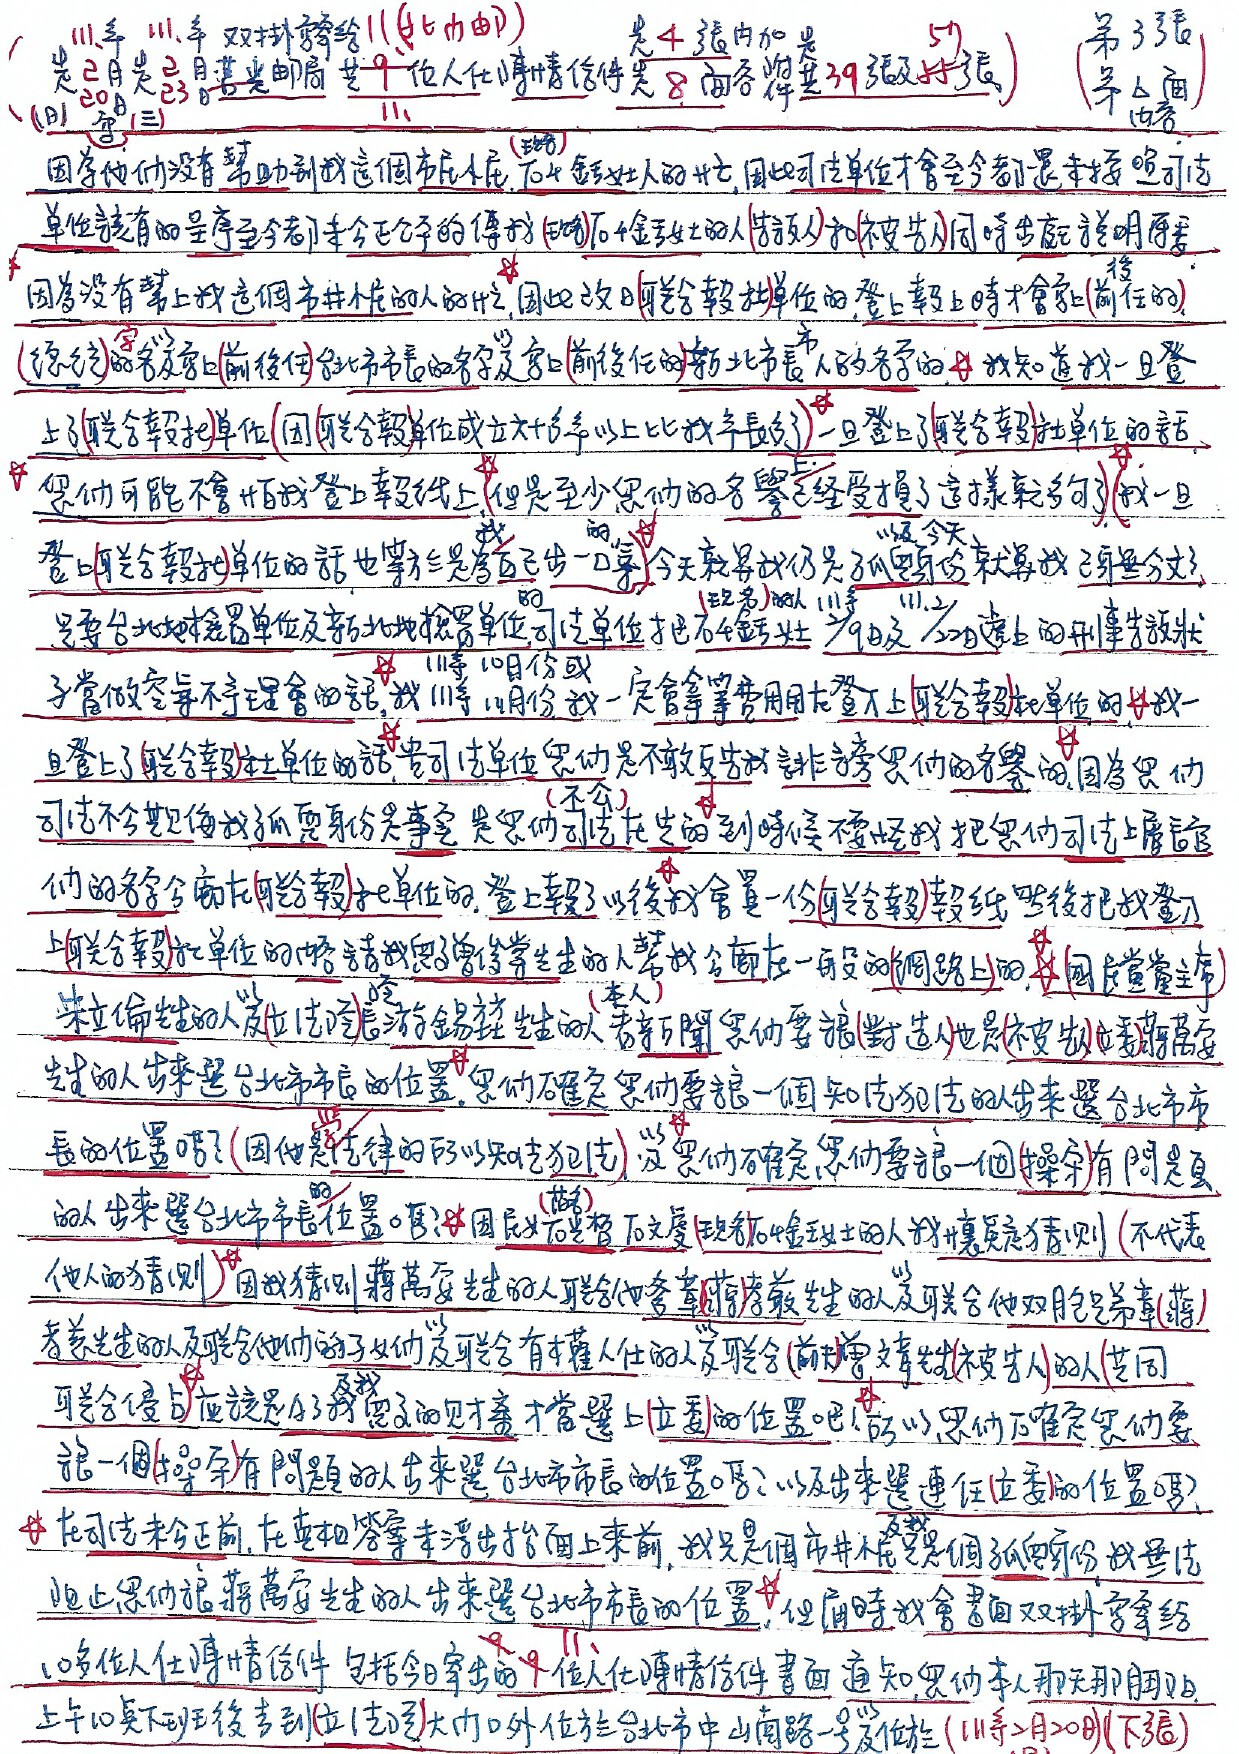 111.年 111.年 双掛寄給11(北市內郵)
是2月是2月莒光邮局 共9 位人仕陳情信件是 8 面容 附件共39張及55張 57
是4張內加是
第3張
第6面內容
20日 23日
(日) 寄 (三)
因為他們没有幫助到我這個市民小民(現名)石4金鈺女士人的忙,因此司法單位才會至今都還未按照司法
單位該有的呈序至今都未公正公平的傳我(現名)石4金鈺女士的人(告訴人)和(被告人)同時出庭說明原委.
因為没有幫上我這個市井小民的人的忙,因此改日(联合報社)單位的,登上報上時才會寫上(前後任的)
(總統)的名字以及寫上(前後任)台北市市長的名字以及寫上(前後任的)新北市市長人的名字的,我知道我一旦登
上了(联合報社)單位(因(联合報)單位成立六十多年以上比我年長多了)一旦登上了(联合報)社單位的話,
您們可能不會怕我登上報纸上,但是至少您們的名譽上已經受損了這樣就夠了(我一旦
登上(联合報社)單位的話也等於是為我自己出一口的氣)今天就算我仍是孤兒身份以及今天就算我已身無分文了,
只要台北地檢署單位及新北地檢署單位的司法單位把石4金鈺女士(現名)的人111年2/9日及111.2/22日遞上的刑事告訴狀
予當做空氣不予理會的話,我111年10月份或111年11月份,我一定會拿筆費用用在登刀上(联合報)社單位的,我一
旦登上了(联合報)社單位的話,貴司法單位您們是不敢反告我誹謗您們的名譽的,因為您們
司法不公欺侮我孤兒身份是事实是您們司法(不公)在先的到時候不要怪我把您們司法上層官
們的名字公廟在(联合報)社單位的,登上報了以後我會買一份(联合報)報纸然後把我登刀
上(联合報)社單位的內容請我兒子曾俊豪先生的人幫我公廟在一般的(網路上)的,(國民黨黨主席)
朱立倫先生的人以及(立法院)院長游錫堃先生的人(本人)看新聞您們要讓(對造人)也是(被告人)立委蔣萬安
先生的人出來選台北市市長的位置,您們石確定您們要讓一個知法犯法的人出來選台北市市
長的位置嗎?(因他是學法律的所以知法犯法),以及您們石確定,您們要讓一個(操守)有問題
的人出來選台北市市長的位置嗎?因民女石芝哲(舊名)石文慶(現名)石4金鈺女士的人我懷疑猜測(不代表
他人的猜測)因我猜測蔣萬安先生的人联合他爸章(蔣)孝嚴先生的人以及联合他双胞兄弟章(蔣)
孝慈先生的人及联合他們的子女們以及联合有本權人仕的人以及联合(前夫)曾文章先生(被告人)的人(共同
联合侵占)應該是給了我及我兒子的財產才當選上(立委)的位置吧!所以,您們石確定您們要
讓一個(操守)有問題的人出來選台北市市長的位置嗎?以及出來選連任(立委)的位置嗎?
在司法未公正前,在真相答案未浮出抬面上來前,我只是個市井小民及我只是個孤兒身份,我無法
阻止您們讓蔣萬安先生的人出來選台北市市長的位置,但屆時我會書面双掛寄給
10多位人仕陳情信件包括今日寄出的9 11.位人仕陳情信件書面通知您們本人那天那月那日
上午10點下班後去到(立法院)大門口外位於台北市中山南路一号及位於(111年2月20日)(下張)